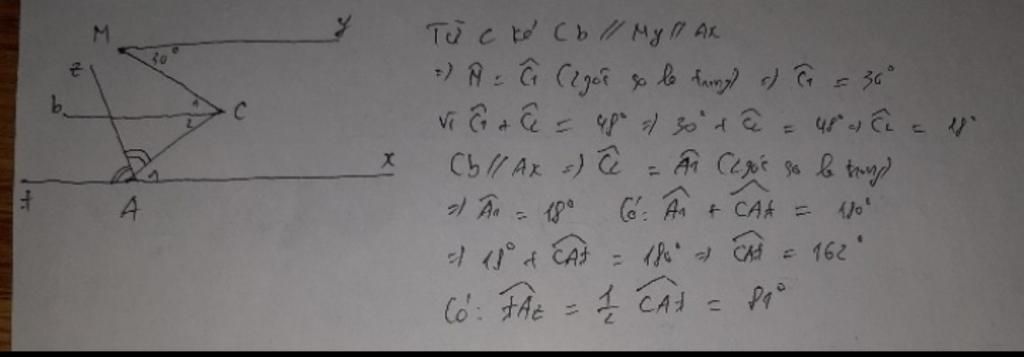 M
y
z
30°
b
1
2
C
x
1
t
A
Từ C kẻ Cb // My // Ax
=> M̂ = Ĉ1 (2 góc so le trong) => Ĉ1 = 30°
Vì Ĉ1 + Ĉ2 = 48° => 30° + Ĉ2 = 48° => Ĉ2 = 18°
Cb // Ax => Ĉ2 = Â1 (2 góc so le trong)
=> Â1 = 18° Có: Â1 + CAt̂ = 180°
=> 18° + CAt̂ = 180° => CAt̂ = 162°
Có: tAẑ = 1/2 CAt̂ = 81°